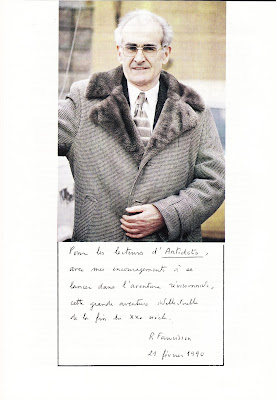 Pour les lecteurs d'Antidote,
avec mes encouragements à se
lancer dans l'aventure révisionniste,
cette grande aventure intellectuelle
de la fin du XXe siècle.
R. Faurisson
21 février 1990